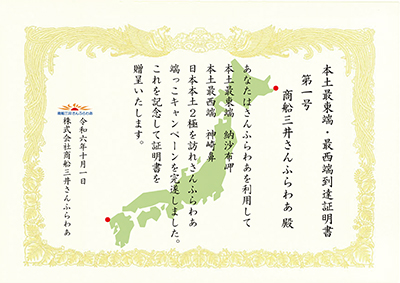 本土最東端・最西端到達証明書
第一号
商船三井さんふらわあ 殿
あなたはさんふらわあを利用して
本土最東端 納沙布岬
本土最西端 神崎鼻
日本本土2極を訪れさんふらわあ
端っこキャンペーンを完遂しました。
これを記念して証明書を
贈呈いたします。
令和六年十月一日
商船三井さんふらわあ
株式会社商船三井さんふらわあ